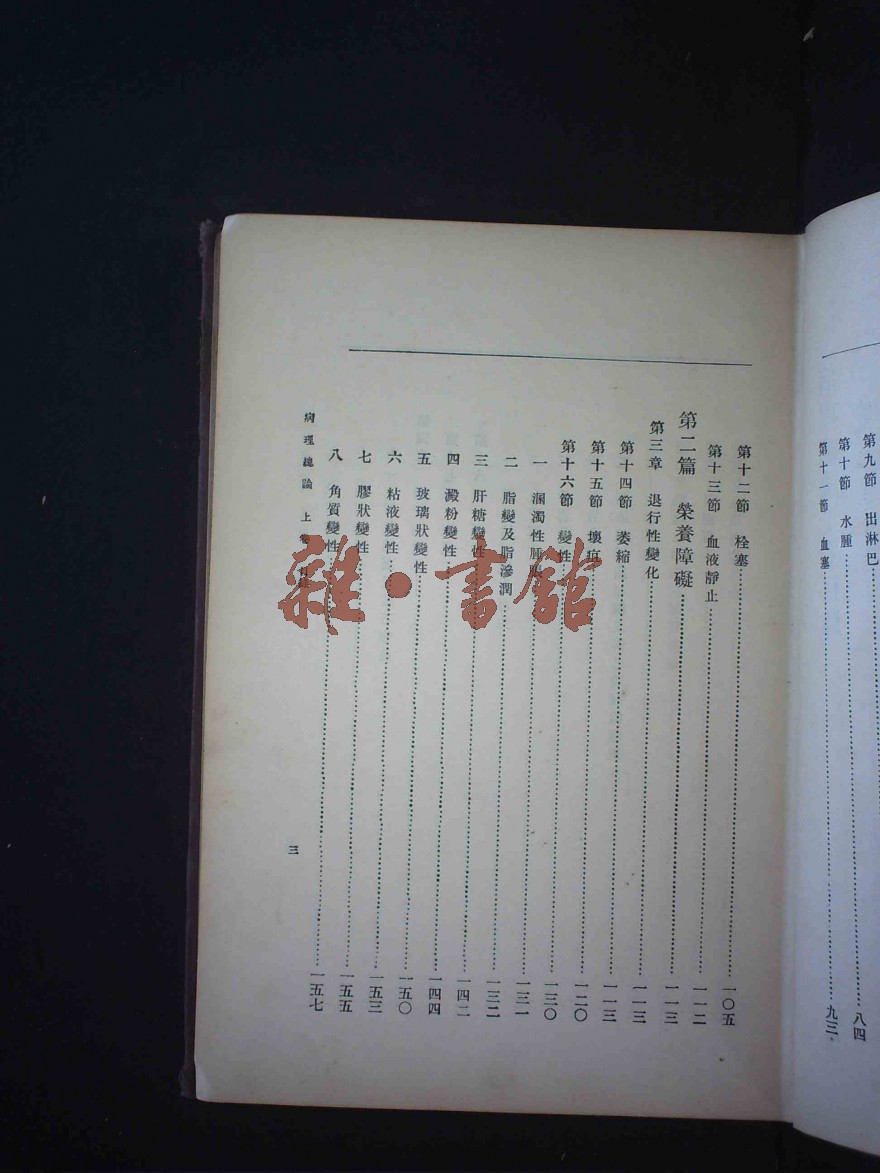 第九節 出淋巴
第十節 水腫……八四
第十一節 血塞……九三
第十二節 栓塞……一〇五
第十三節 血液靜止……一一二
第二篇 榮養障礙……一一三
第三章 退行性變化……一一三
第十四節 萎縮……一一三
第十五節 壞疽……一二〇
第十六節 變性……一三〇
一 溷濁性腫脹……一三一
二 脂變及脂滲潤……一三二
三 肝糖變性……一四二
四 澱粉變性……一四四
五 玻璃狀變性……一五〇
六 粘液變性……一五三
七 膠狀變性……一五五
八 角質變性……一五七
病理總論 上卷 目錄 三
雜·書館